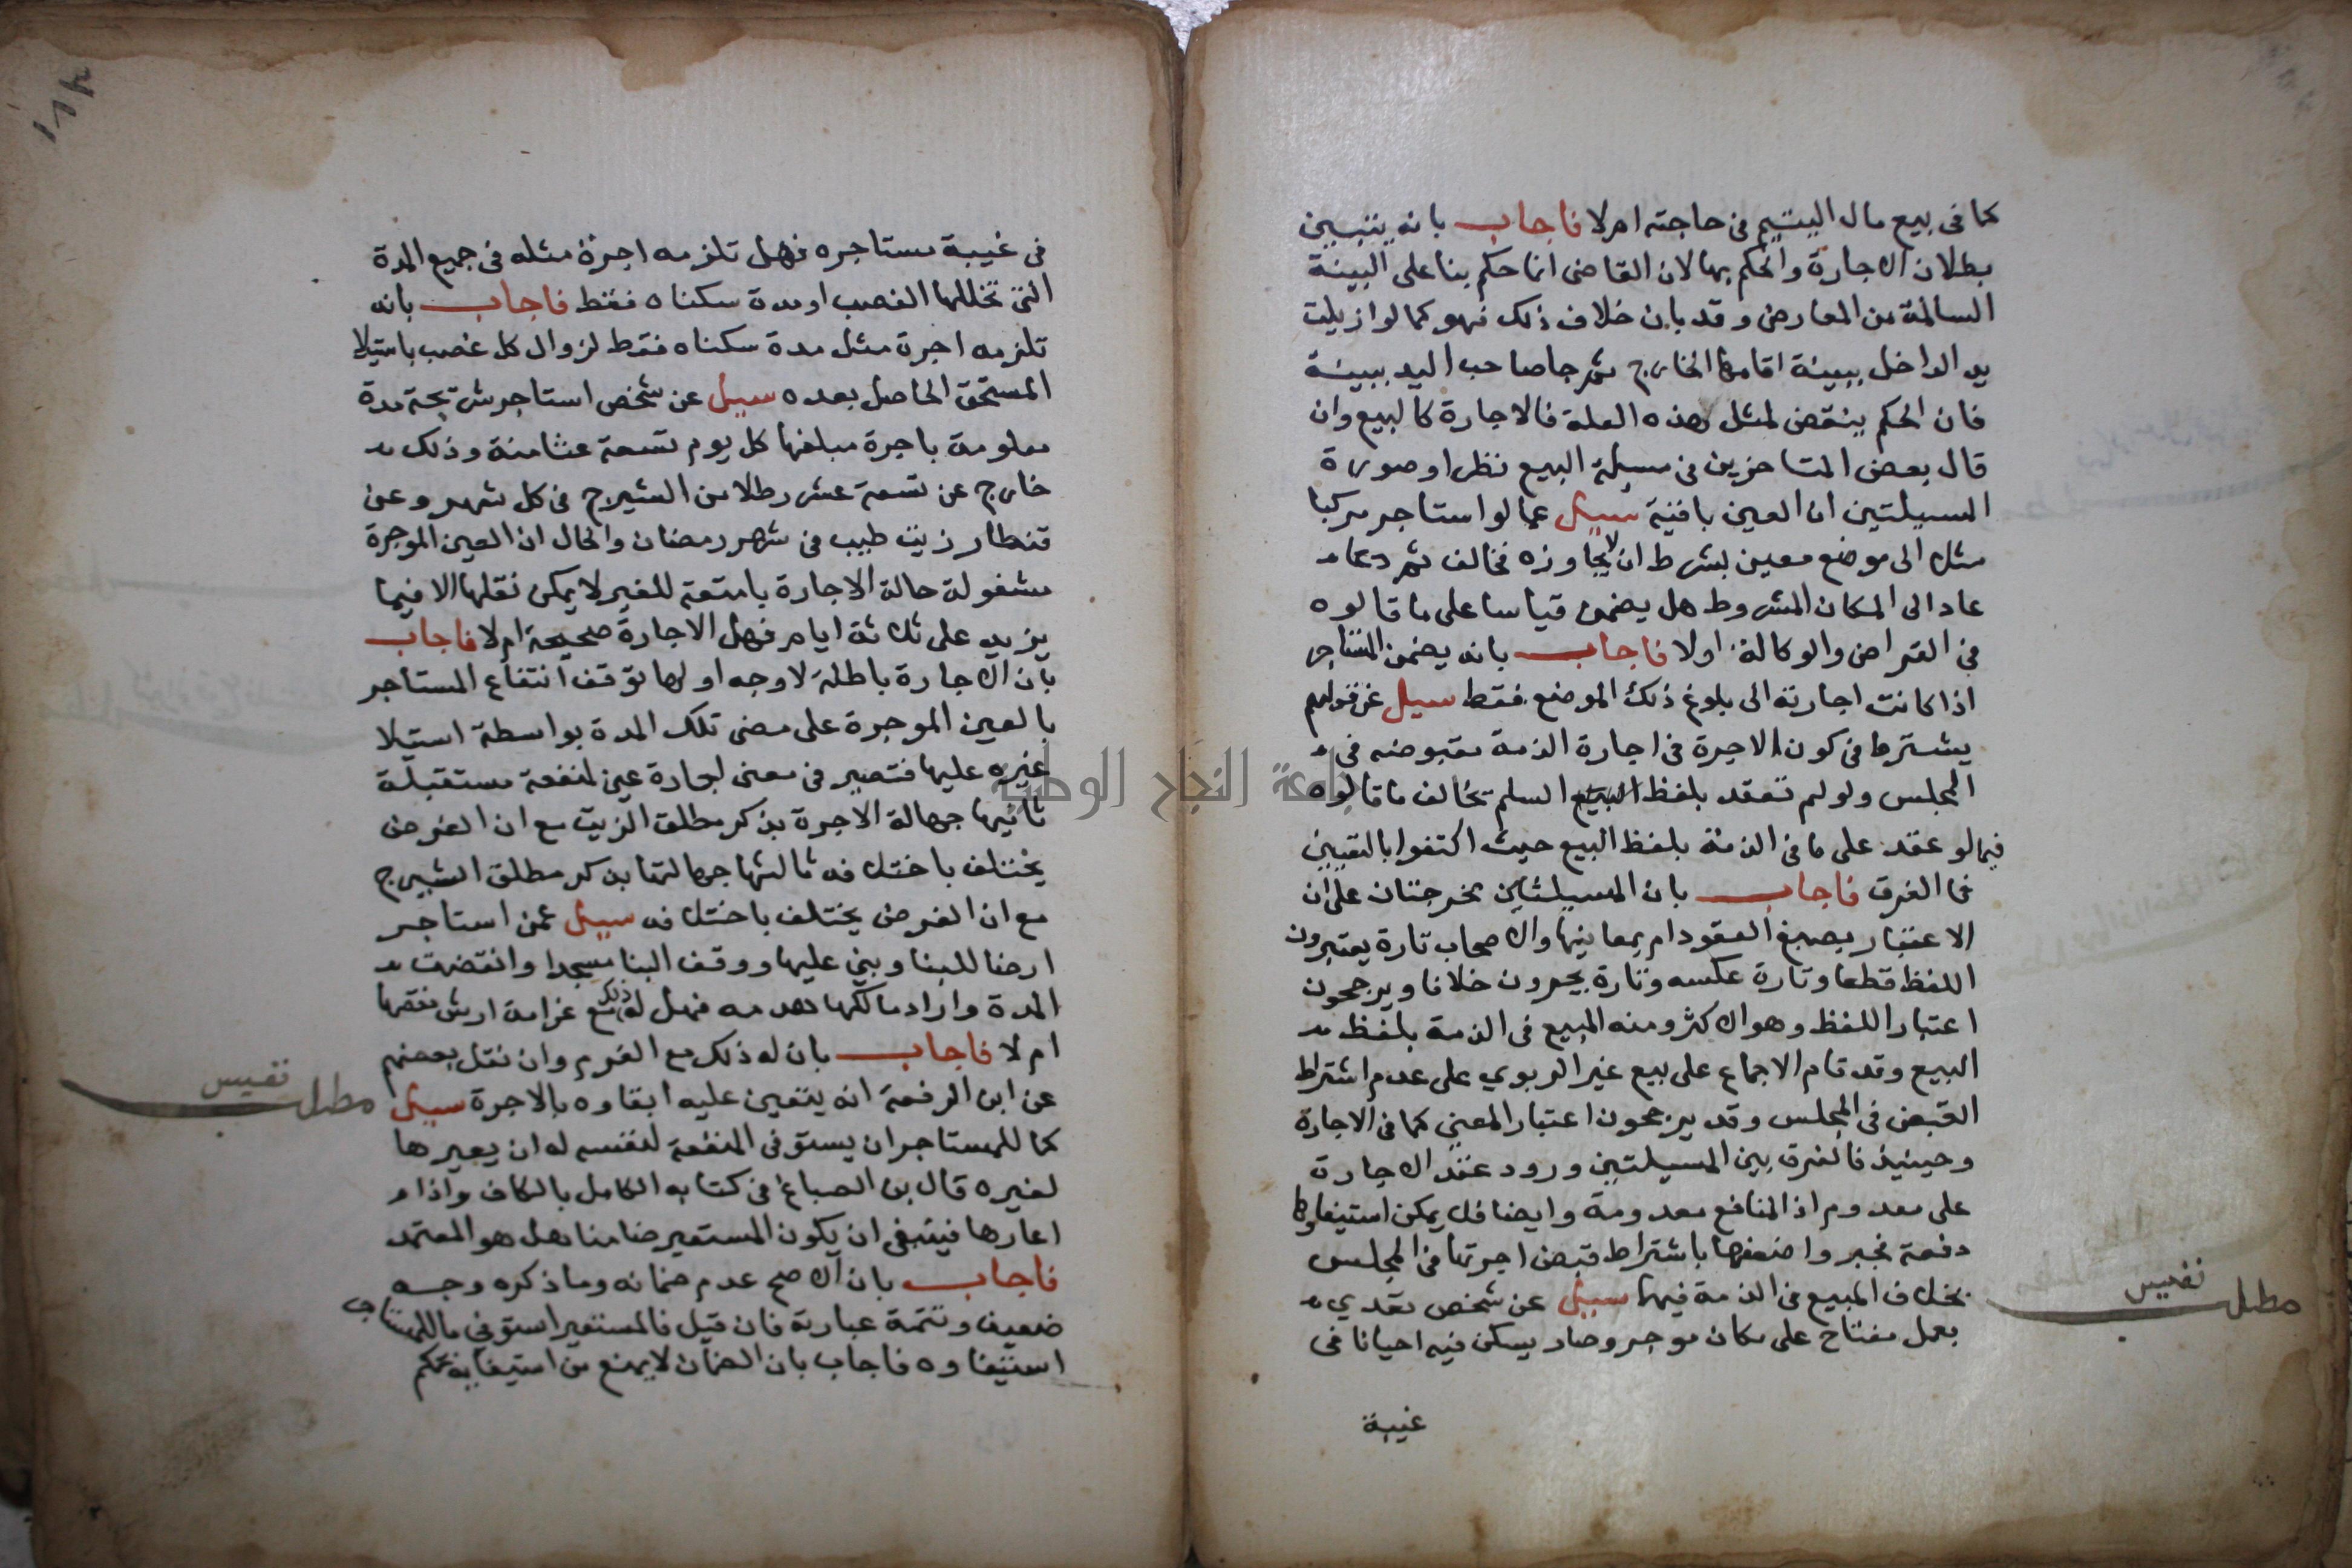 كما فى بيع مال اليتيم فى حاجته ام لا فاجاب بانه يتبين
بطلان الاجارة والحكم بها لان القاضى انما حكم بنا على البينة
السالمة من المعارض وقد بان خلاف ذلك فهو كما لو ازيلت
يد الداخل ببينة اقامها الخارج ثم جا صاحب اليد ببينة
فان الحكم ينقض لمثل هذه العلة فالاجارة كالبيع وان
قال بعض المتاخرين فى مسيلة البيع نظر اوصورة
المسيلتين ان العين باقية سيل عما لو استاجر مركبا
مثلا الى موضع معين بشرط ان لا يجاوزه فخالف ثم
عاد الى المكان المشروط هل يضمن قياسا على ما قالوه
فى القراض والوكالة اولا فاجاب بانه يضمن المستاجر
اذا كانت اجارته الى بلوغ ذلك الموضع فقط سيل عن قولهم
يشترط فى كون الاجرة فى اجارة الذمة مقبوضه فى
المجلس ولو لم تعقد بلفظ السلم تخالف ما قالوه
فيما لو عقد على ما فى الذمة بلفظ البيع حيث اكتفوا بالتعيين
فما الفرق فاجاب بان المسيلتين مخرجتان على ان
الاعتبار بصيغ العقود ام بمعانيها والاصحاب تارة يعتبرون
اللفظ قطعا وتارة عكسه وتارة يجرون خلافا ويرجحون
اعتبار اللفظ وهو الاكثر ومنه المبيع فى الذمة بلفظ
البيع وقد قام الاجماع على بيع غير الربوي على عدم اشتراط
القبض فى المجلس وقد يرجحون اعتبار المعنى كما فى الاجارة
وحينيذ فالفرق بين المسيلتين ورود عقد الاجارة
على معدوم اذ المنافع معدومة وايضا فلا يمكن استيفاوها
دفعة فجبروا ضعفها باشتراط قبض اجرتها فى المجلس
بخلاف المبيع فى الذمة فيها سيل عن شخص تعدي
بعمل مفتاح على مكان موجر وصار يسكن فيه احيانا فى
مطلب نفيس
غيبة
فى غيبة مستاجره فهل تلزمه اجرة مثله فى جميع المدة
التى تخللها الغصب او مدة سكناه فقط فاجاب بانه
تلزمه اجرة مثل مدة سكناه فقط لزوال كل غصب باستيلا
المستحق الحاصل بعده سيل عن شخص استاجر سيرجة مدة
معلومة باجرة مبلغها كل يوم تسعة عثامنة وذلك
خارج عن تسعة عشر رطلا من الشيرج فى كل شهر وعن
قنطار زيت طيب فى شهر رمضان والحال ان العين الموجرة
مشغولة حالة الاجارة بامتعة للغير لا يمكن نقلها الا فيما
يزيد على ثلاثة ايام فهل الاجارة صحيحة ام لا فاجاب
بان الاجارة باطلة لاوجه اولها توقف انتفاع المستاجر
بالعين الموجرة على مضى تلك المدة بواسطة استيلا
غيره عليها فتصير فى معنى اجارة عين لمنفعة مستقبلة
ثانيها جهالة الاجرة بذكر مطلق الزيت مع ان الغرض
يختلف باختلافه ثالثها جهالتها بذكر مطلق الشيرج
مع ان الغرض يختلف باختلافه سيل عمن استاجر
ارضا للبنا وبنى عليها ووقف البنا مسجدا وانقضت
المدة واراد مالكها هدمه فهل له ذلك مع غرامة ارش نقصها
ام لا فاجاب بان له ذلك مع الغرم وان نقل بعضهم
عن ابن الرفعة انه يتعين عليه ابقاوه بالاجرة سيل
مطلب نفيس
كما للمستاجر ان يستوفى المنفعة لنفسه له ان يعيرها
لغيره قال بن الصباغ فى كتابه الكامل بالكاف واذا
اعارها فينبغى ان يكون المستعير ضامنا هل هو المعتمد
فاجاب بان الاصح عدم ضمانه وما ذكره وجه
ضعيف وتتمة عبارته فان قيل فالمستعير استوفي ما للمستاجر
استيفاوه فاجاب بان الضمان لا يمنع من استيفايه بحكم
جامعة النجاح الوطنية